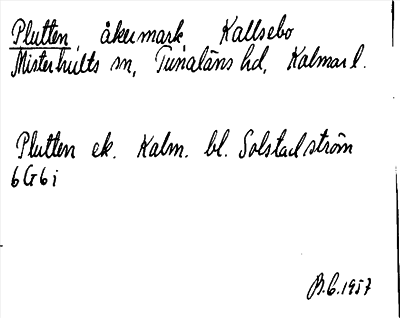 Plutten, åkermark, Kallsebo
Misterhults sn, Tunaläns hd, Kalmar l.
Plutten ek. Kalm. bl. Solstadström
6G6i
B.C. 1957